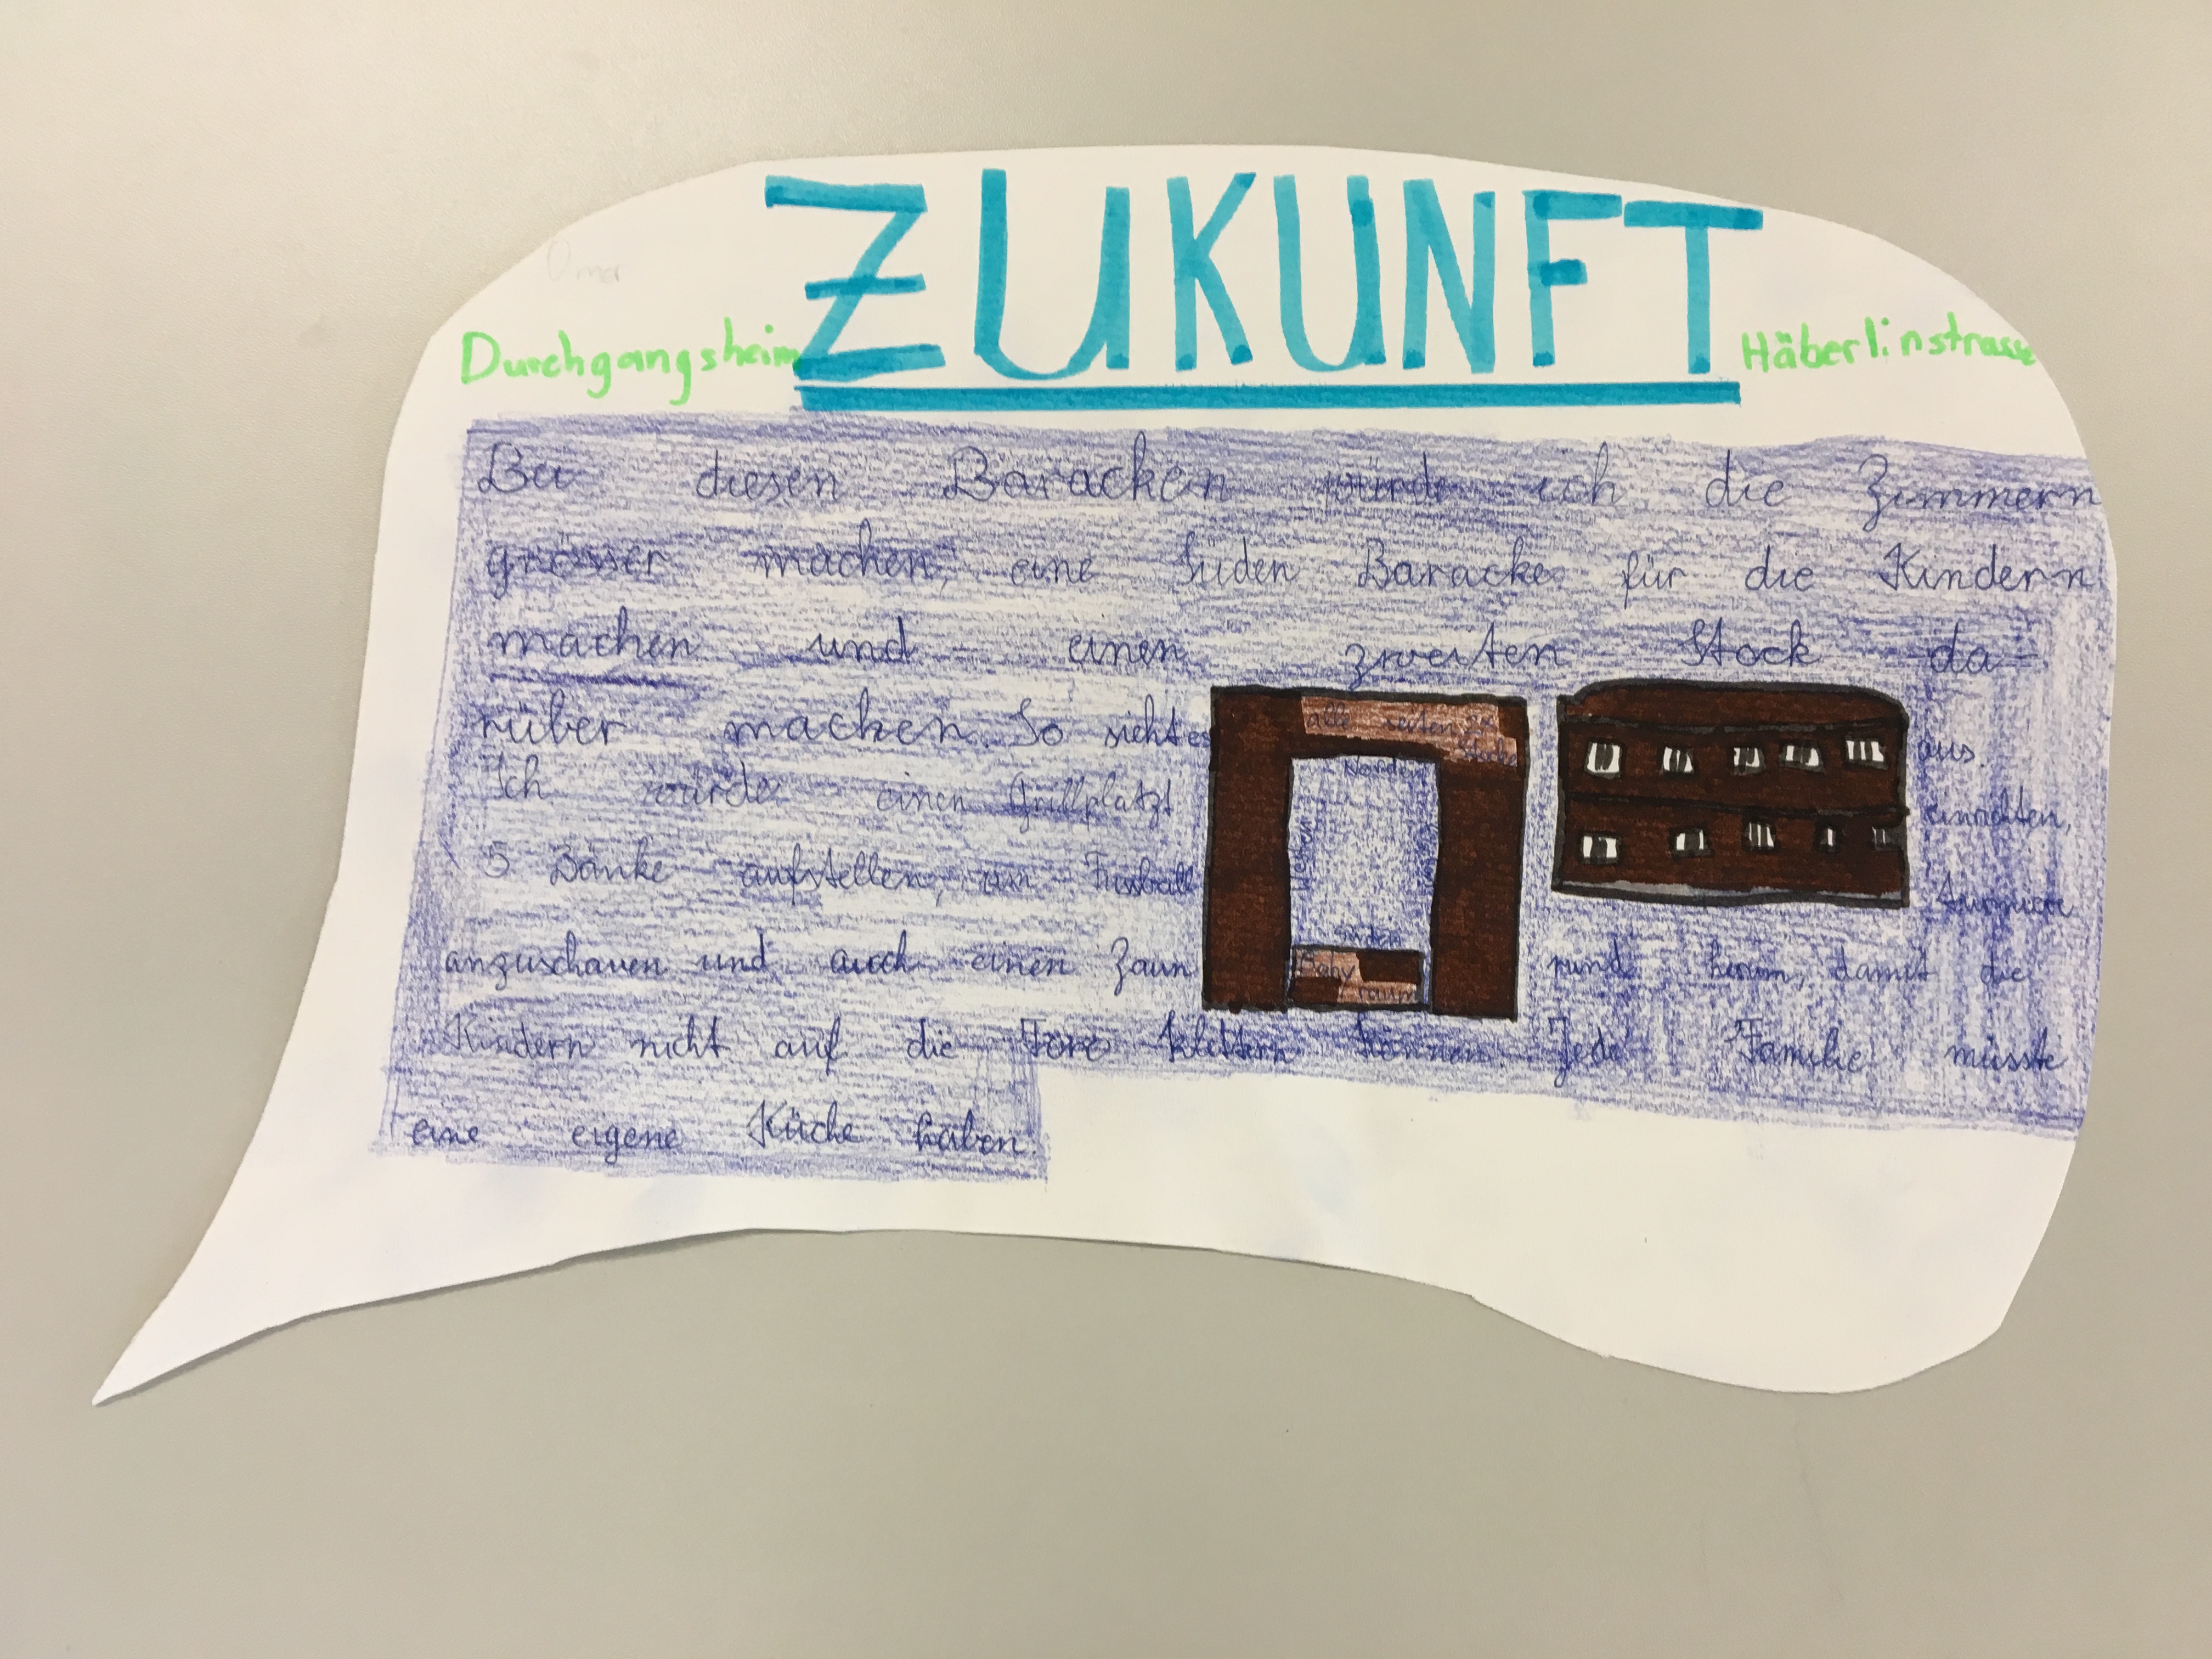 Omer
ZUKUNFT
Durchgangsheim Häberlinstrasse
Bei diesen Baracken würde ich die Zimmern
grösser machen, eine Süden Baracke für die Kindern
machen und einen zweiten Stock da-
rüber machen. So sieht es aus.
Ich würde einen Grillplatzt einrichten,
5 Bänke aufstellen, um Fussball Turniere
anzuschauen und auch einen Zaun rund herum, damit die
Kindern nicht auf die Tore klettern können. Jede Familie müsste
eine eigene Küche haben.
alle seiten
Stock
Norden
Westen
Süden
Baby
raum